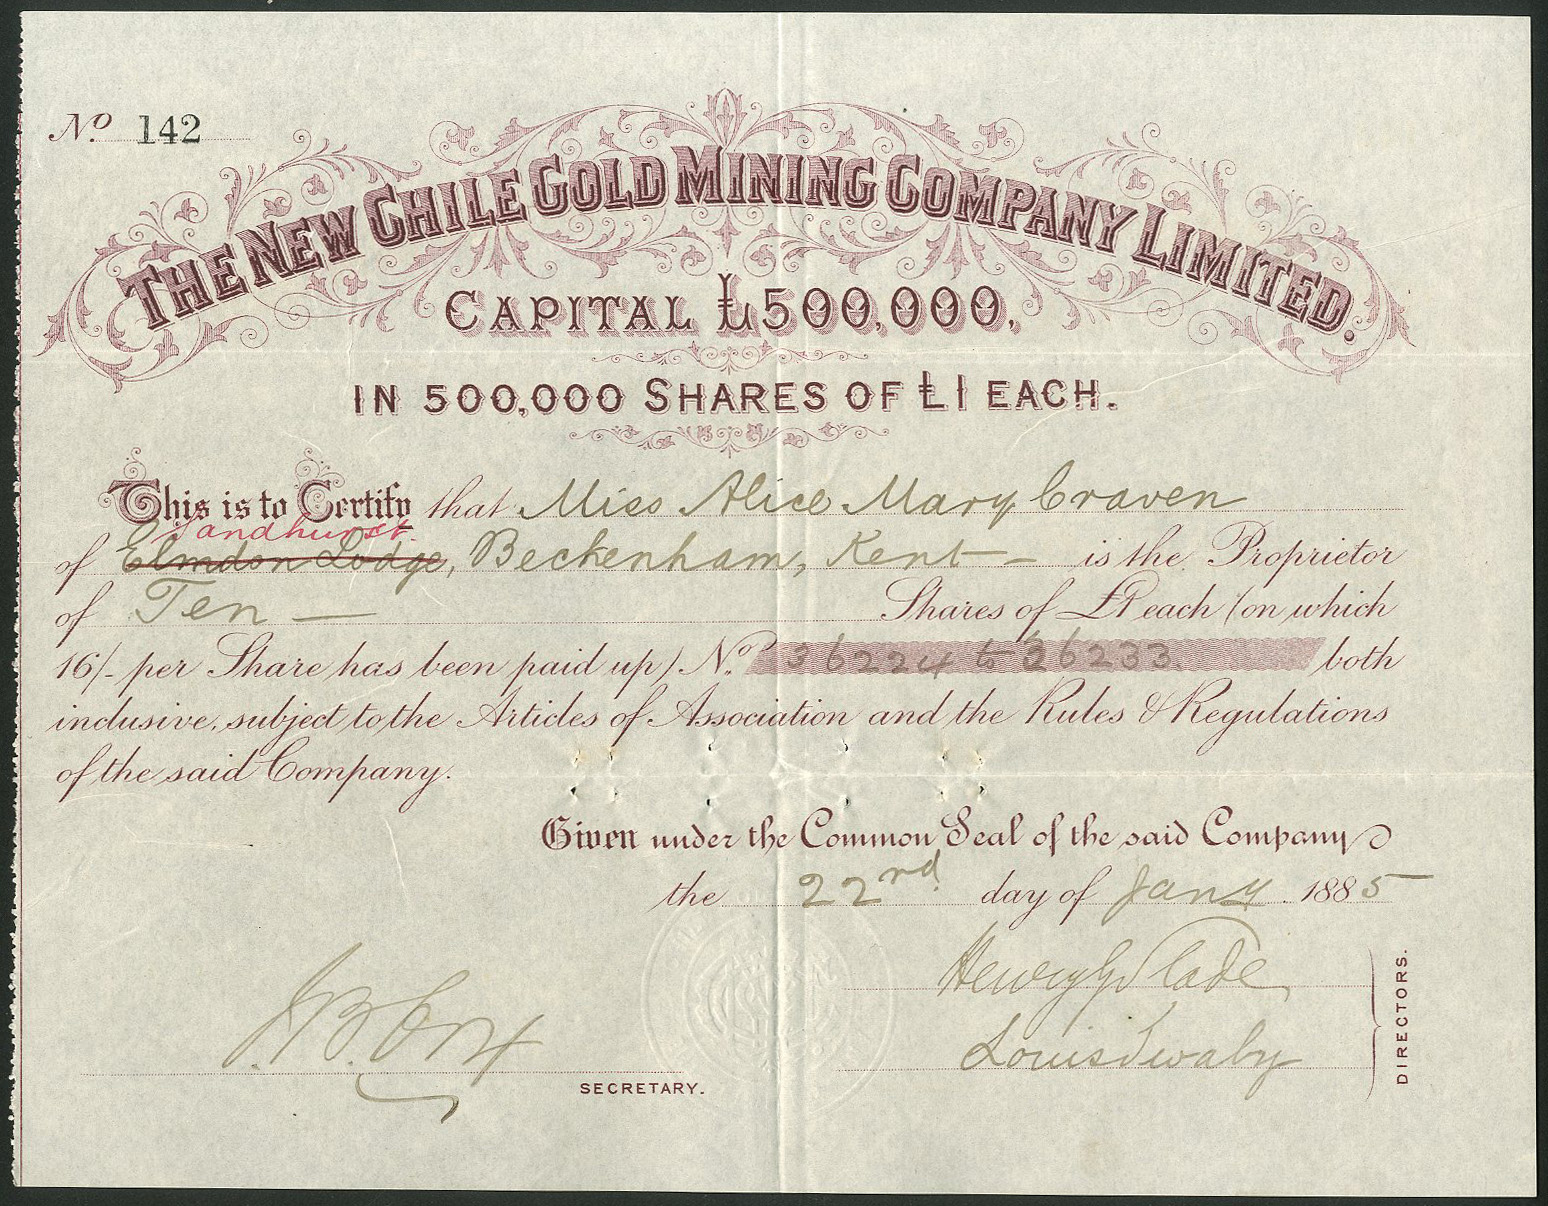 No. 142
THE NEW CHILE GOLD MINING COMPANY LIMITED.
CAPITAL £500,000,
IN 500,000 SHARES OF £1 EACH.
This is to Certify that Miss Alice Mary Craven
Sandhurst
of Elmdon Lodge, Beckenham, Kent — is the Proprietor
of Ten — Shares of £1 each (on which
16/- per Share has been paid up) No. 36224 to 36233. both
inclusive, subject to the Articles of Association and the Rules & Regulations
of the said Company.
Given under the Common Seal of the said Company
the 22nd day of Jany 1885
Henry G Slade
Louis Swaby
DIRECTORS.
SECRETARY.